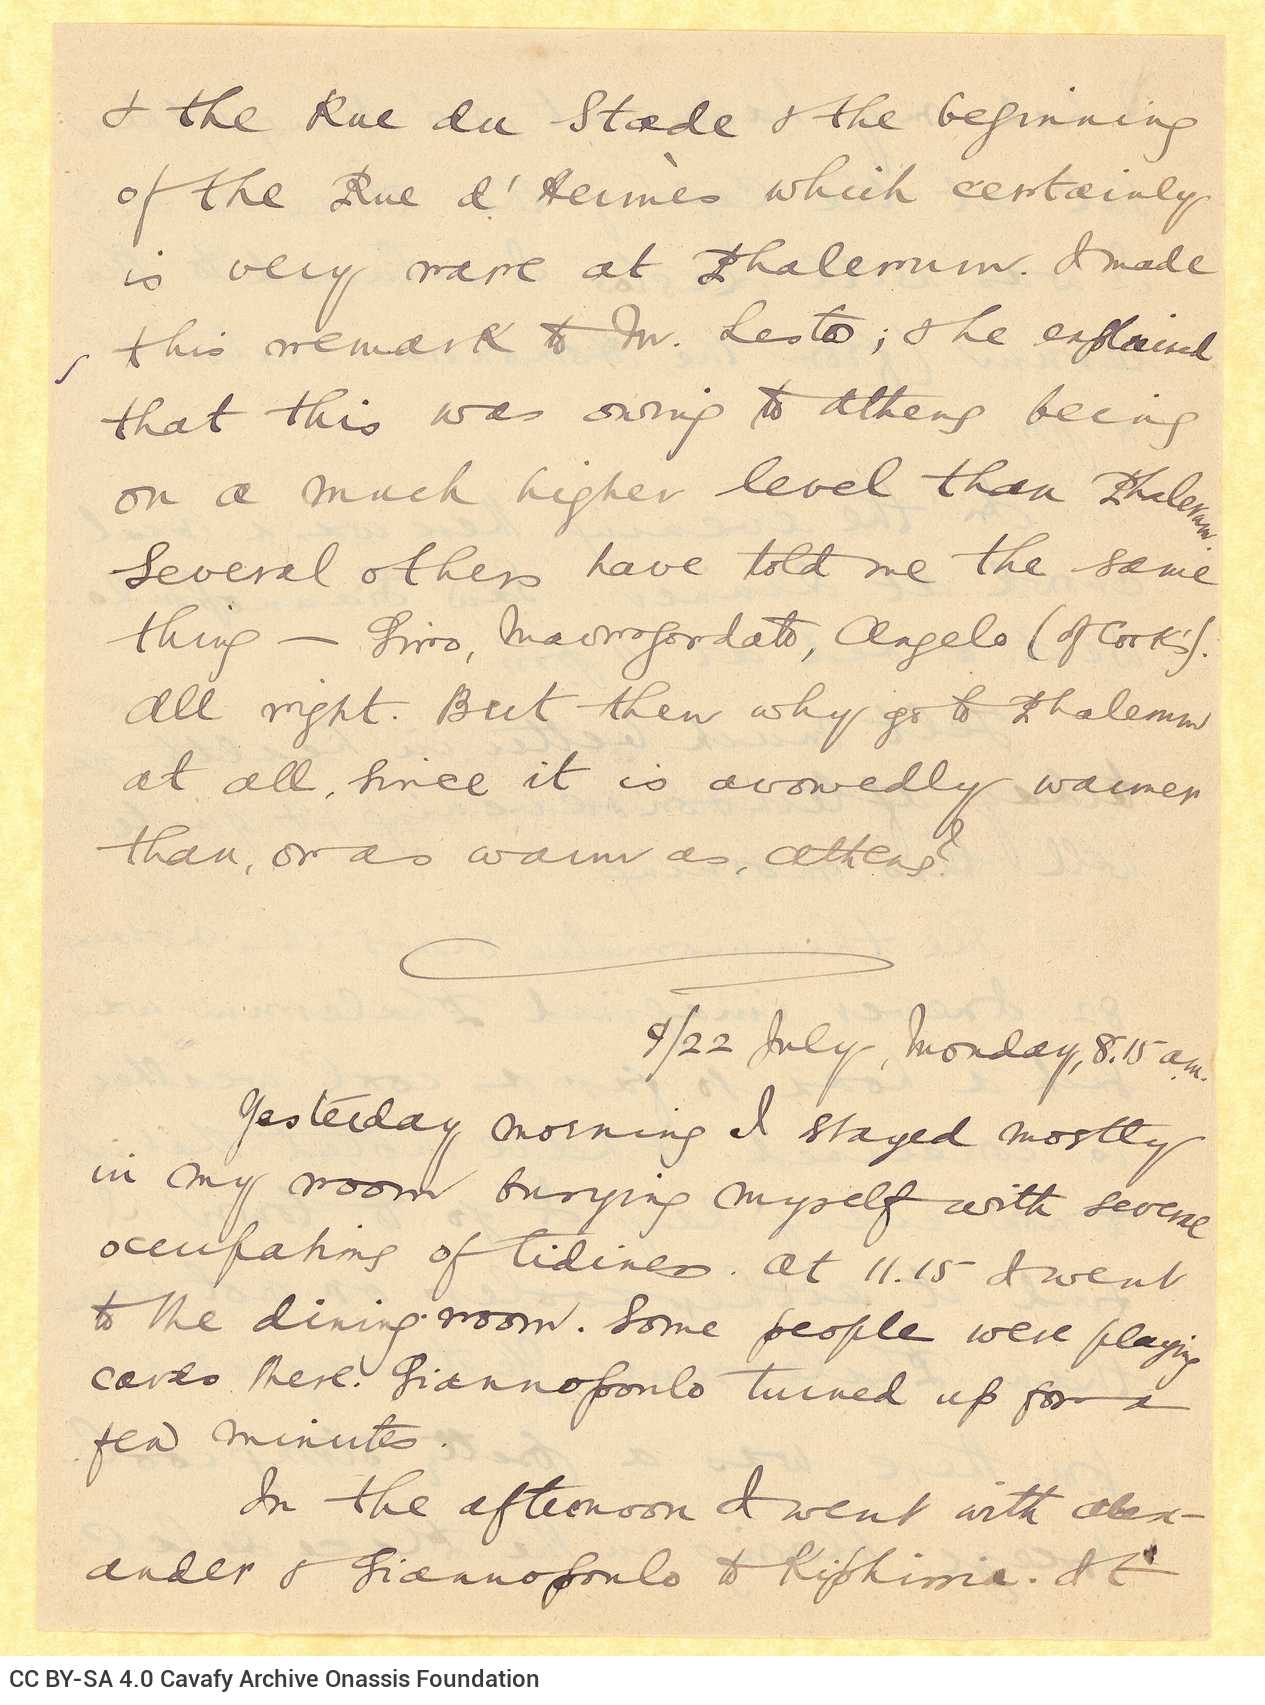 & the Rue du Stade & the beginning
of the Rue d'Hermès which certainly
is very rare at Phalerum. I made
this remark to Mr. Lesto; & he explained
that this was owing to Athens being
on a much higher level than Phalerum.
Several others have told me the same
thing — Siro, Mavrogordato, Angelo (of Cook's).
All right. But then why go to Phalerum
at all, since it is avowedly warmer
than, or as warm as, Athens?
9/22 July, Monday, 8.15 a.m.
Yesterday morning I stayed mostly
in my room busying myself with severe
occupations of tidiness. At 11.15 I went
to the dining-room. Some people were playing
cards there. Giannopoulo turned up for a
few minutes.
In the afternoon I went with Alex-
ander & Giannopoulo to Kiphissia. It
CC BY-SA 4.0 Cavafy Archive Onassis Foundation